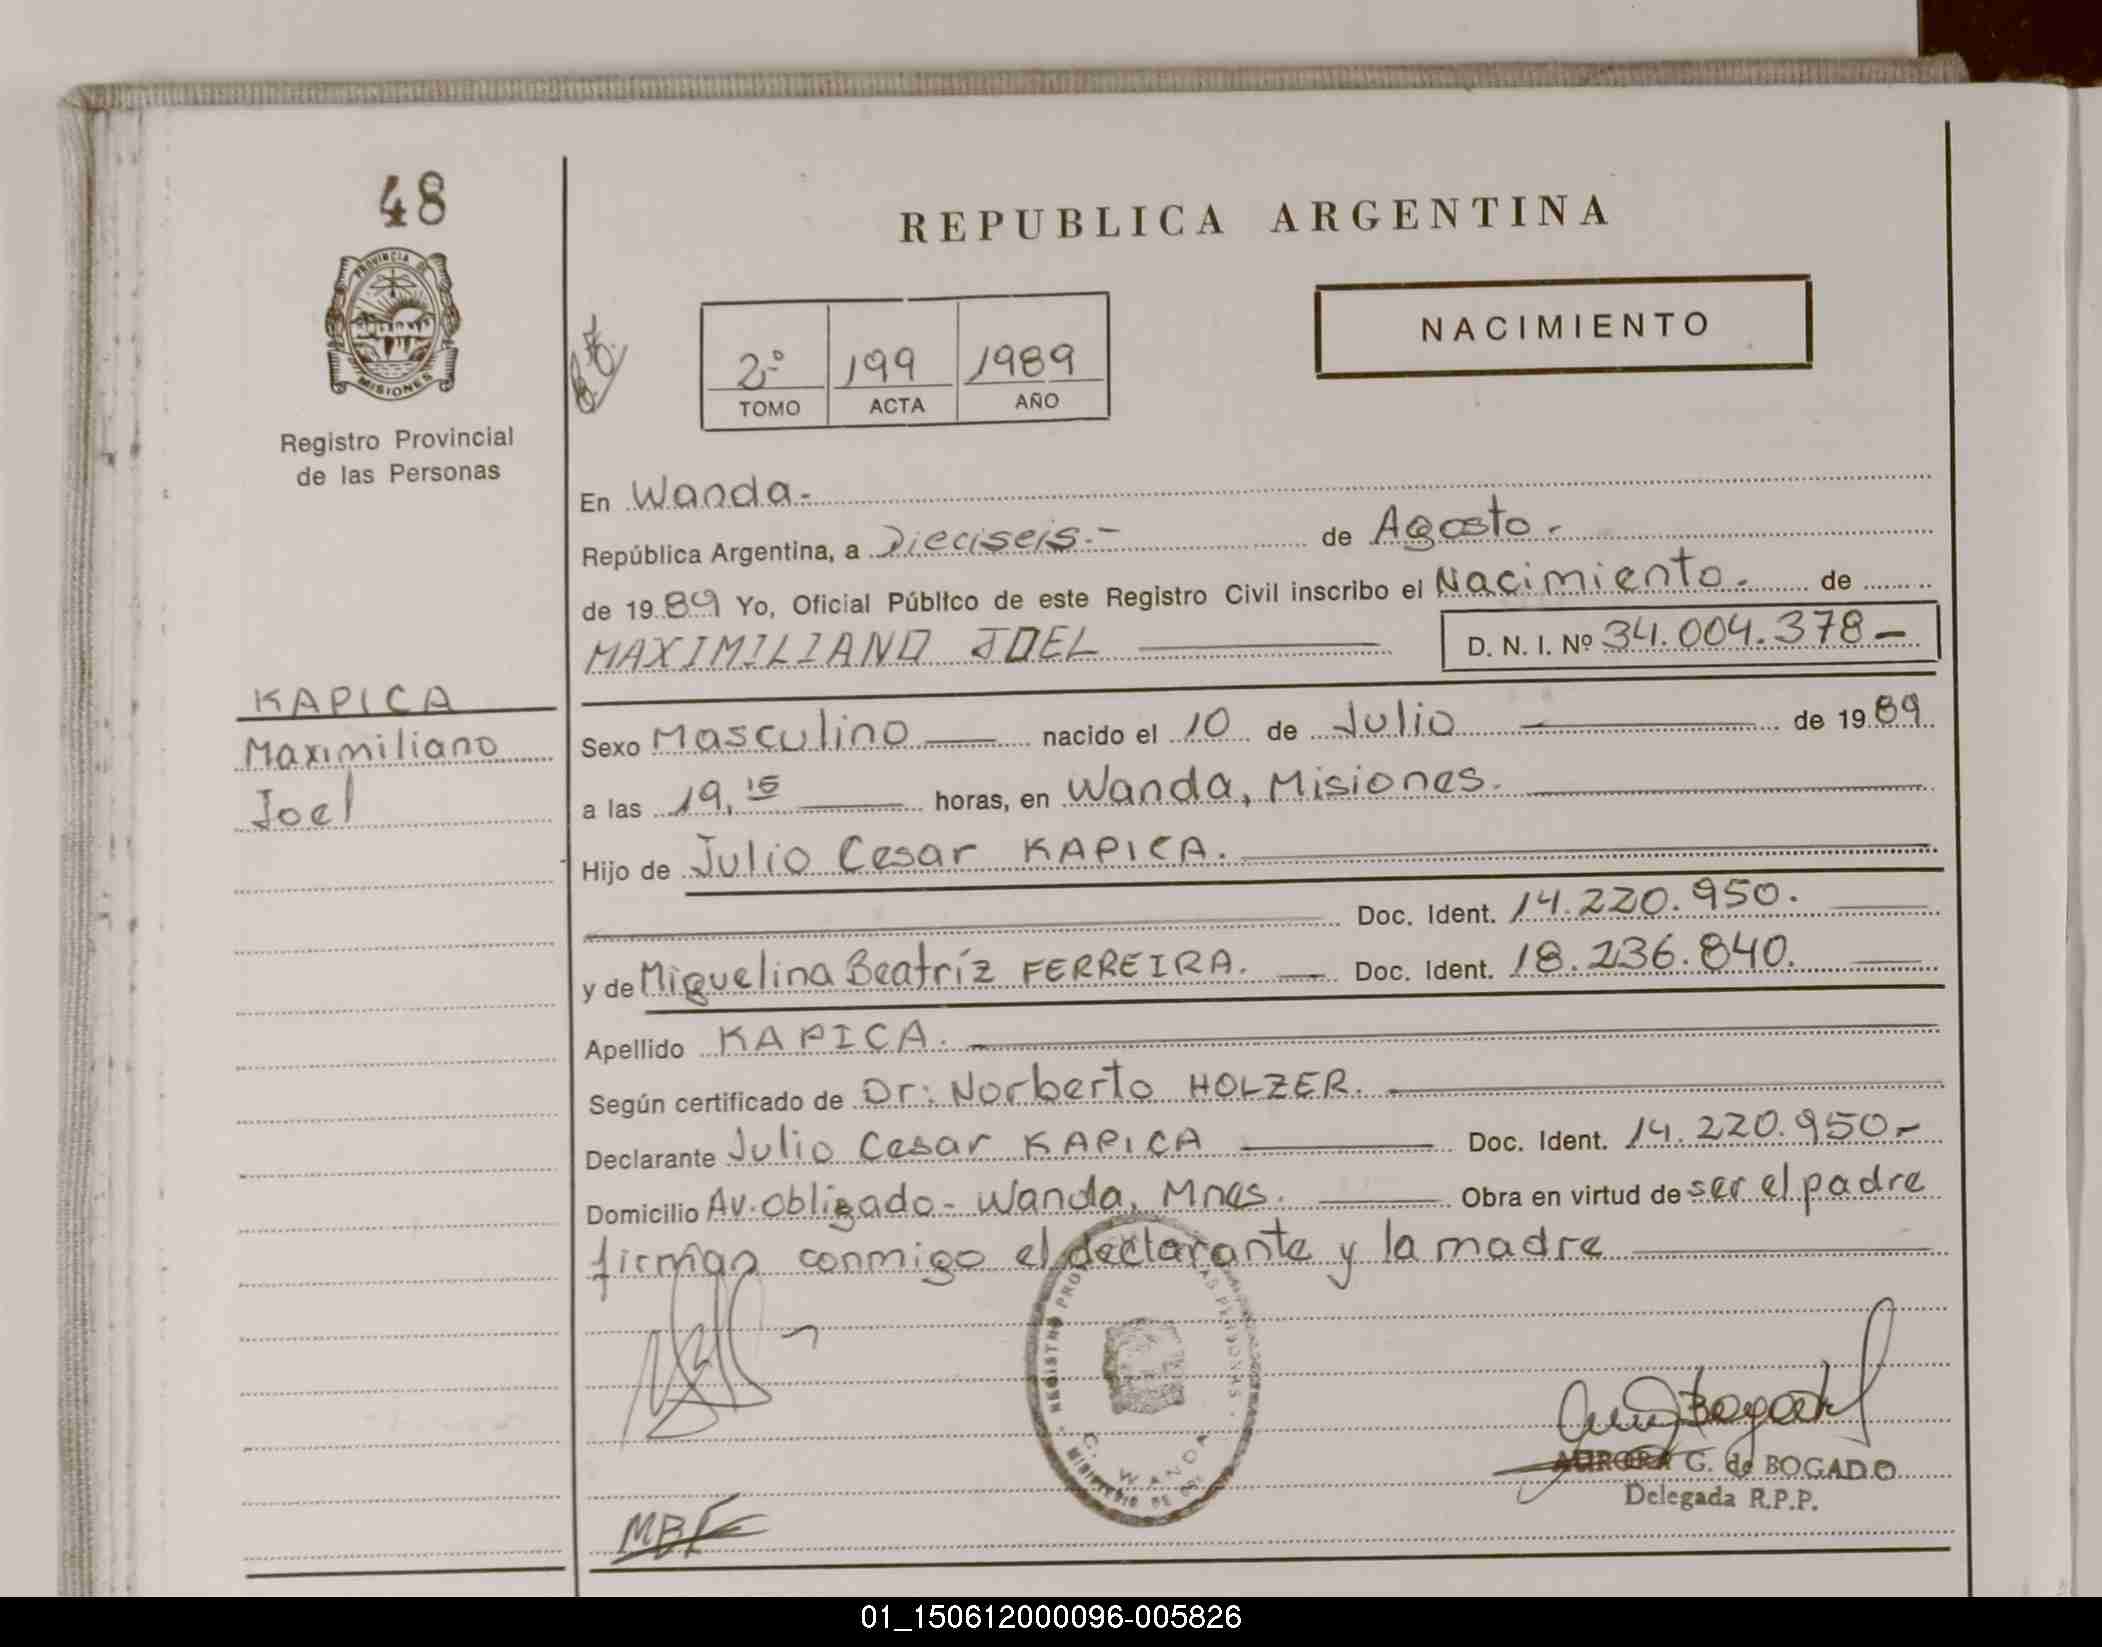 48
PROVINCIA DE
MISIONES
Registro Provincial
de las Personas
REPUBLICA ARGENTINA
2º 199 1989
TOMO ACTA AÑO
NACIMIENTO
En Wanda.-
República Argentina, a Dieciseis.- de Agosto.-
de 1989 Yo, Oficial Público de este Registro Civil inscribo el Nacimiento.- de
MAXIMILIANO JOEL D. N. I. Nº 34.004.378-
KAPICA
Maximiliano
Joel
Sexo Masculino nacido el 10 de Julio de 1989
a las 19,15 horas, en Wanda, Misiones.
Hijo de Julio Cesar KAPICA.
Doc. Ident. 14.220.950.
y de Miguelina Beatríz FERREIRA. Doc. Ident. 18.236.840.
Apellido KAPICA.
Según certificado de Dr: Norberto HOLZER.
Declarante Julio Cesar KAPICA Doc. Ident. 14.220.950-
Domicilio Av. Obligado - Wanda, Mnes. Obra en virtud de ser el padre
firman conmigo el declarante y la madre
REGISTRO PERSONAS
WANDA
MINISTERIO DE
Bogado
AURORA G. de BOGADO
Delegada R.P.P.
MBF
01_150612000096-005826